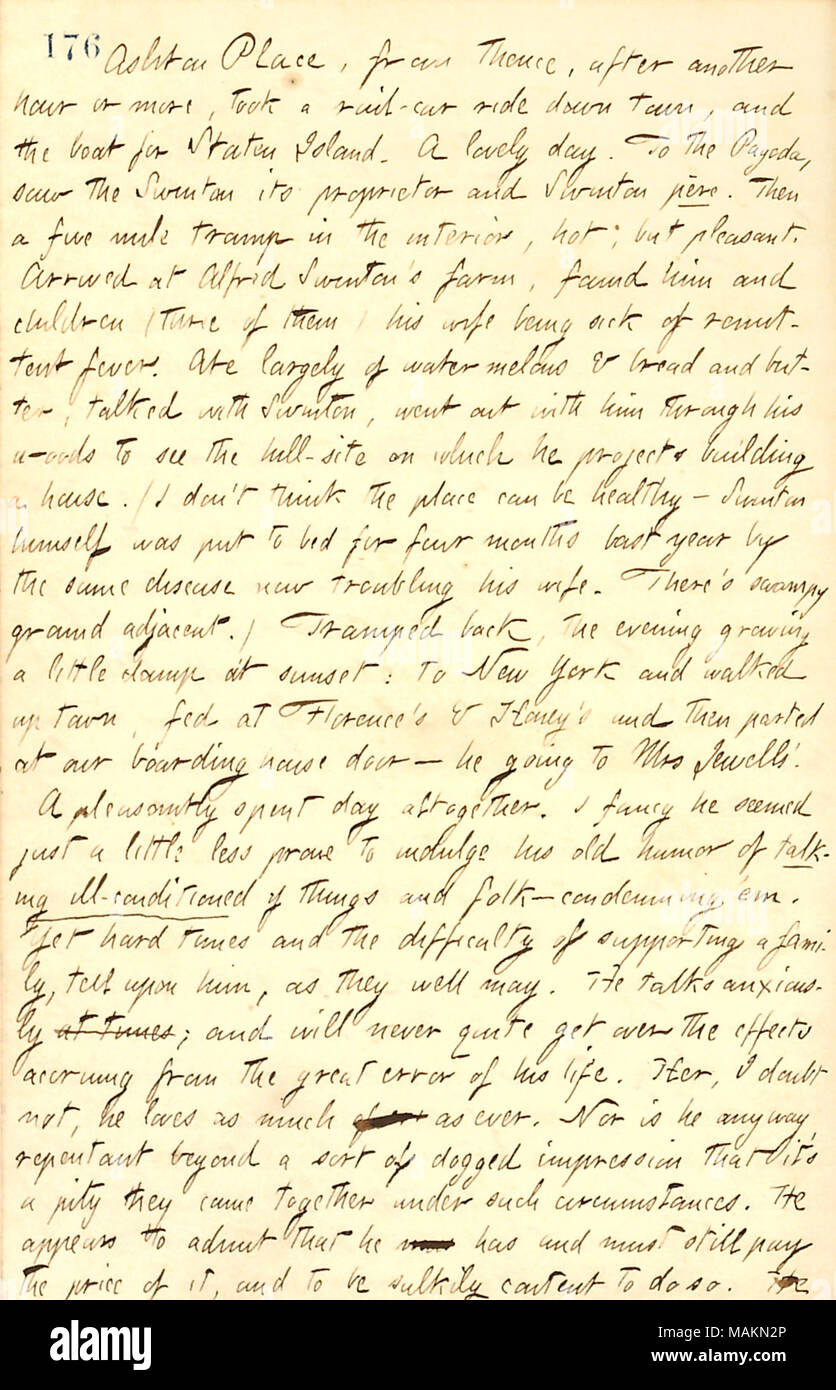 176 Ashton Place, from thence, after another
hour or more, took a rail-car ride down town, and
the boat for Staten Island. A lovely day. To the Pagoda,
saw the Swinton its proprietor and Swinton père. Then
a five mile tramp in the interior, hot; but pleasant.
Arrived at Alfred Swinton's farm, found him and
children (three of them) his wife being sick of remit-
tent fever. Ate largely of water melons & bread and but-
ter, talked with Swinton, went out with him through his
woods to see the hill-site on which he projects building
a house. (I don't think the place can be healthy — Swinton
himself was put to bed for four months last year by
the same disease now troubling his wife. There's swampy
ground adjacent.) Tramped back, the evening growing
a little damp at sunset: to New York and walked
up town, fed at Florence's & Honey's and then parted
at our boarding house door — he going to Mrs Jewells'.
A pleasantly spent day altogether. I fancy he seemed
just a little less prone to indulge his old humor of talk-
ing ill-conditioned of things and folk — condemning 'em.
Yet hard times and the difficulty of supporting a fami-
ly, tell upon him, as they well may. He talks anxious-
ly at times; and will never quite get over the effects
accruing from the great error of his life. Her, I doubt
not, he loves as much as ever. Nor is he anyway
repentant beyond a sort of dogged impression that it's
a pity they came together under such circumstances. He
appears to admit that he has and must still pay
the price of it, and to be sulkily content to do so. He
alamy
Image ID: MAKN2P
www.alamy.com